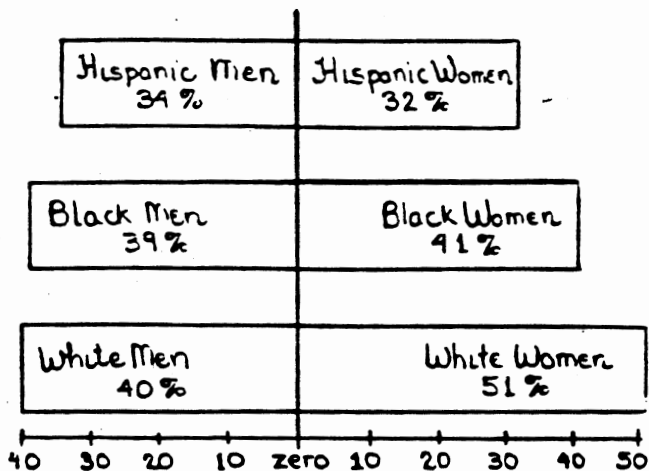 Hispanic Men
34 %
Hispanic Women
32 %
Black Men
39 %
Black Women
41 %
White Men
40 %
White Women
51 %
40 30 20 10 zero 10 20 30 40 50